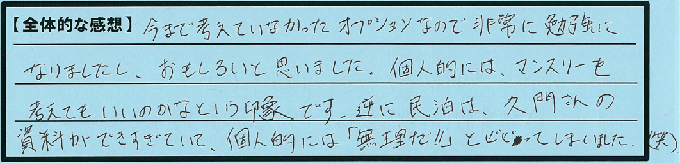 【全体的な感想】今まで考えていなかったオプションなので非常に勉強に
なりましたし、おもしろいと思いました。個人的には、マンスリーも
考えてもいいのかなという印象です。逆に民泊は、久門さんの
資料ができすぎていて、個人的には「無理だ!!」とビビってしまいました。(笑)